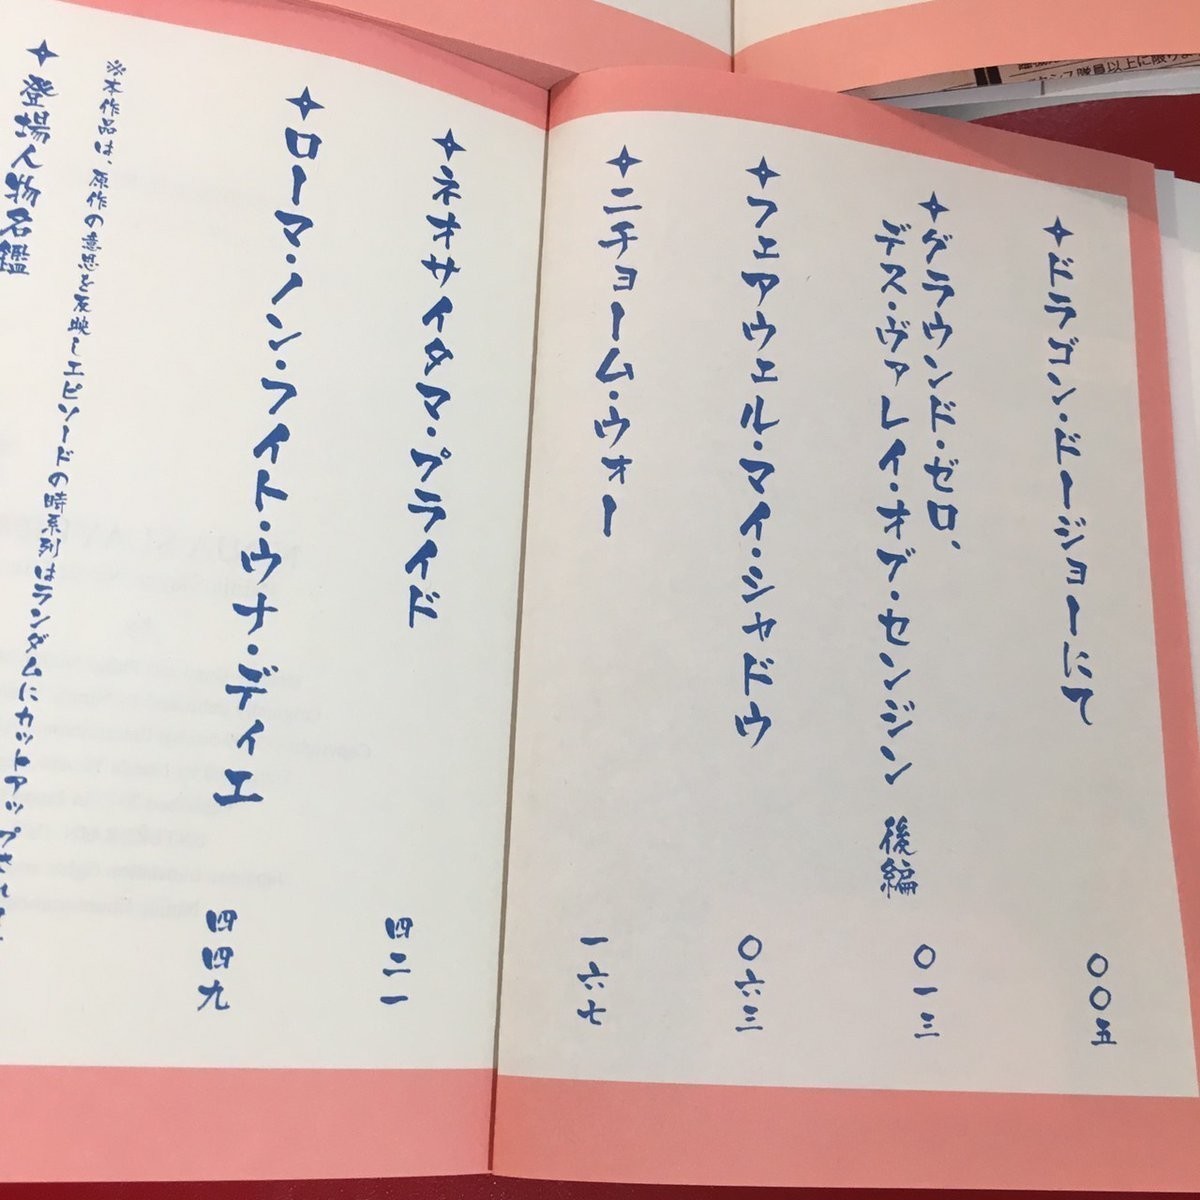 ドラゴン・ドージョーにて
〇〇五
グラウンド・ゼロ、
デス・ヴァレイ・オブ・センジン 後編
〇一三
フェアウェル・マイ・シャドウ
〇六三
ニチョーム・ウォー
一六七
ネオサイタマ・プライド
四二一
ローマ・ノン・フイト・ウナ・ディエ
四四九
※本作品は、原作の意思を反映しエピソードの時系列はランダムにカットアップされ
登場人物名鑑